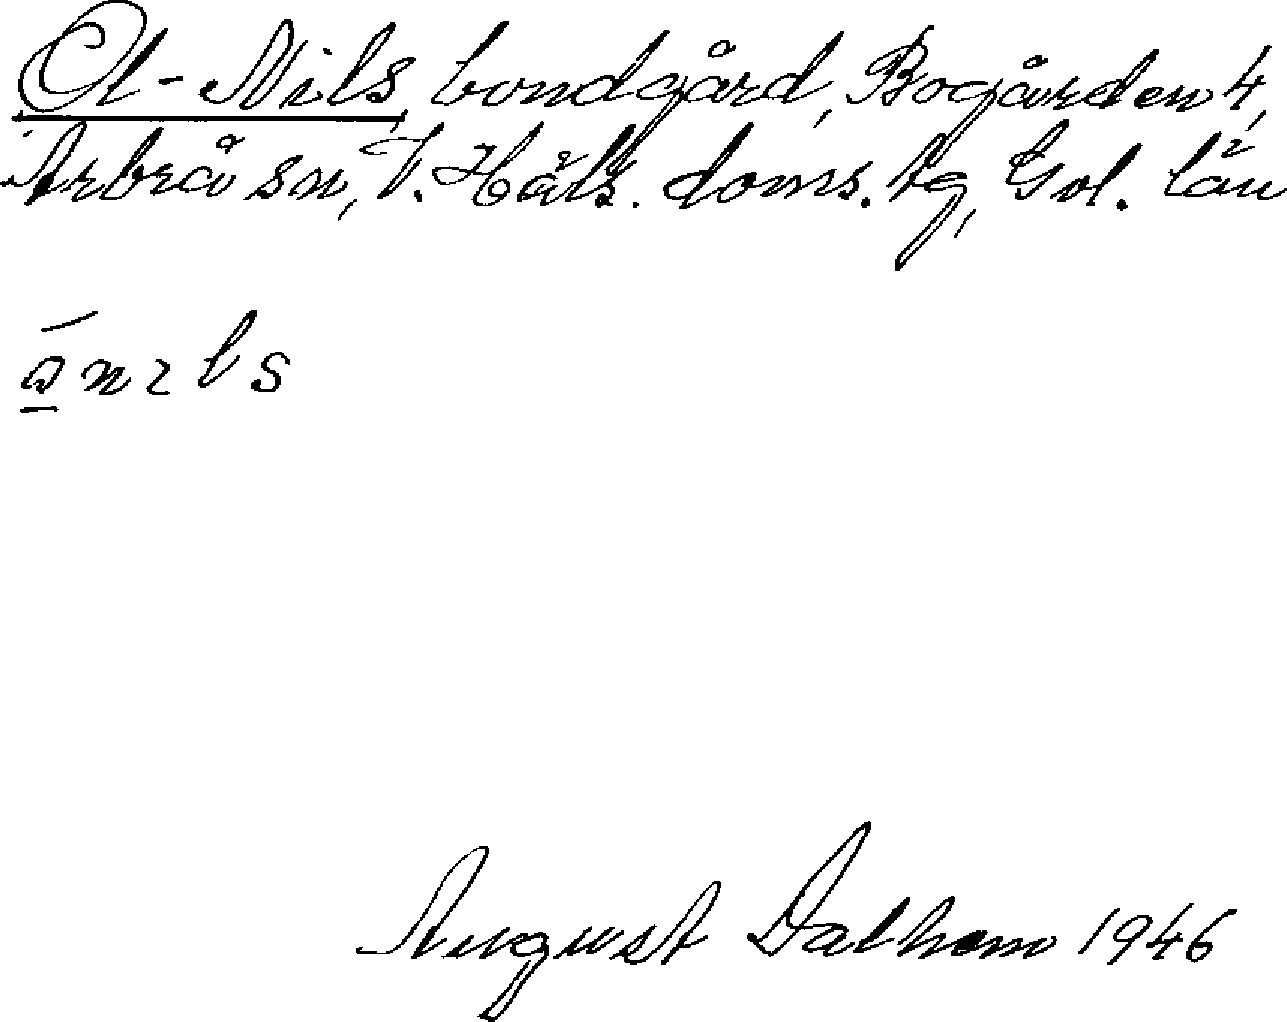 Ol-Nils, bondgård, Bogården 4,
Arbrå sn, V. Häls. doms. tg, Gvl. län
August Dalhem 1946